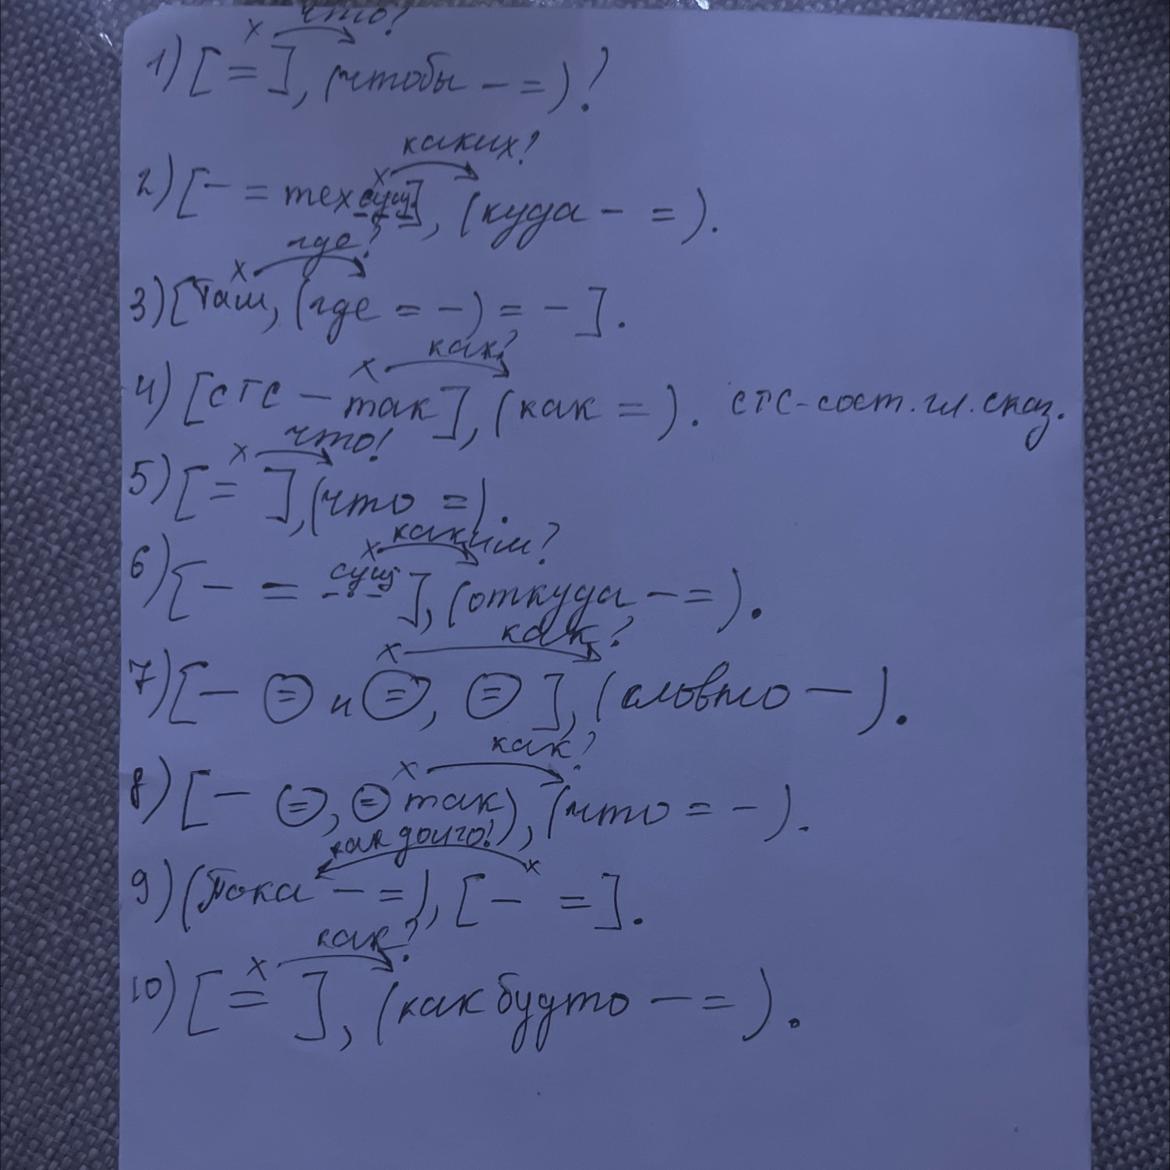 что?
1) [ = ], (чтобы – = )?
каких?
2) [ – = тех сущ ], (куда – = ).
где?
3) [ Там, (где = – ) = – ].
как?
4) [ СГС – так ], (как = ). СГС-сост. гл. сказ.
что?
5) [ = ], (что = ).
каким?
6) [ – = сущ ], (откуда – = ).
как?
7) [ – = и = , = ], (словно – ).
как?
8) [ – = , = так ), (что = – ).
как долго?
9) (Пока – = ), [ – = ].
как?
10) [ = ], (как будто – = ).